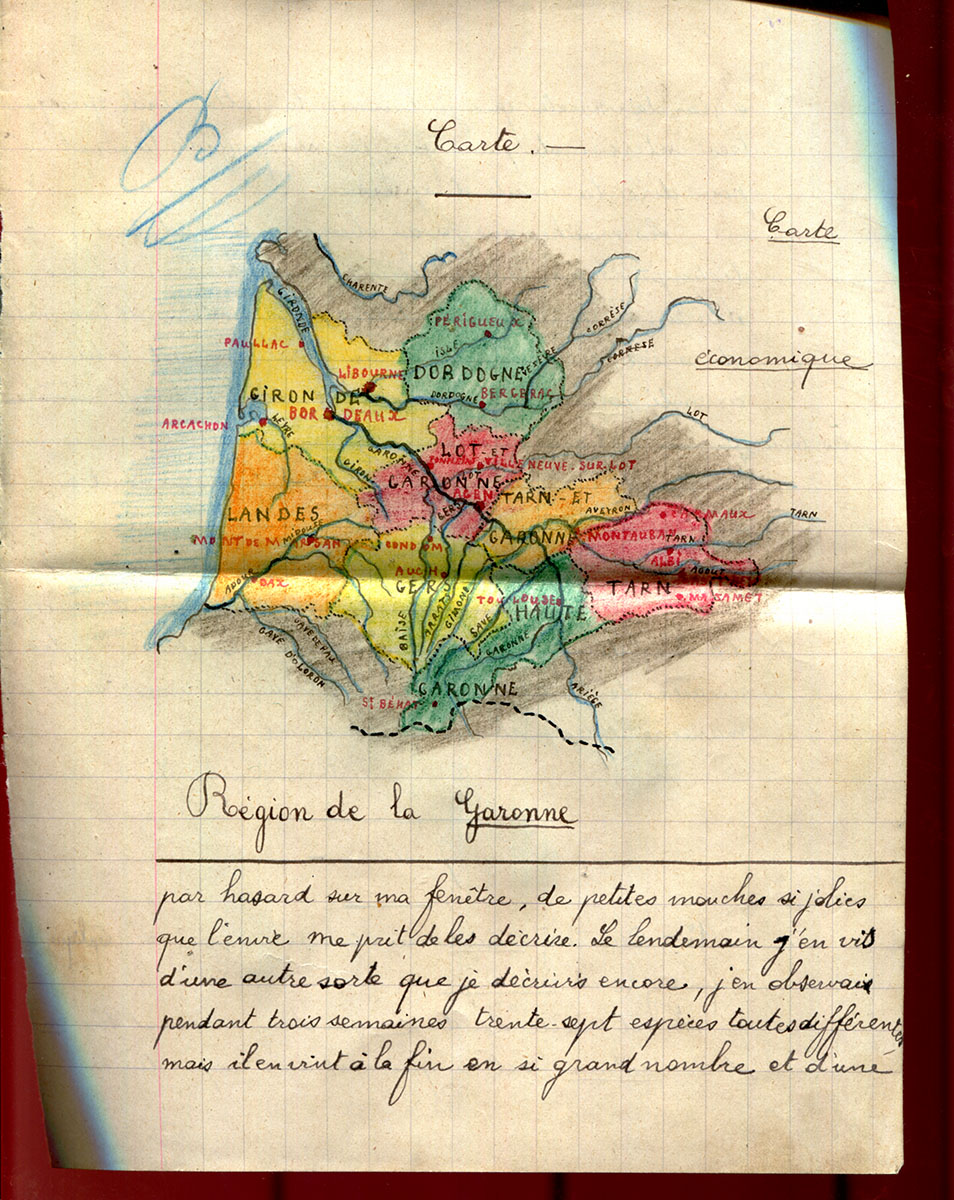 B
Carte. —
Carte
économique
CHARENTE
GIRONDE
PAUILLAC
PERIGUEUX
ISLE
CORRÈSE
CORRESE
VÉZÈRE
LIBOURNE
DORDOGNE
GIRONDE
DORDOGNE
BERGERAC
BORDEAUX
ARCACHON
LEYRE
GARONNE
LOT
LOT-ET
TONNEINS
VILLENEUVE-SUR-LOT
LOT
GARONNE
AGEN
GERS
TARN-ET
AVEYRON
LANDES
MIDOUZE
MONT DE MARSAN
CONDOM
GARONNE
MONTAUBAN
CARMAUX
TARN
TARN
ALBI
AGOUT
ADOUR
DAX
AUCH
GERS
TOULOUSE
HAUTE
TARN
MAZAMET
BAÏSE
ARRATS
GIMONE
SAVE
GAVE DE PAU
GAVE D'OLORON
GARONNE
GARONNE
ST BÉHAT
ARIÈGE
Région de la Garonne
par hasard sur ma fenêtre, de petites mouches si jolies
que l'envie me prit de les décrire. Le lendemain j'en vis
d'une autre sorte que je décrivis encore, j'en observais
pendant trois semaines trente-sept espèces toutes différentes
mais il en vint à la fin en si grand nombre et d'une